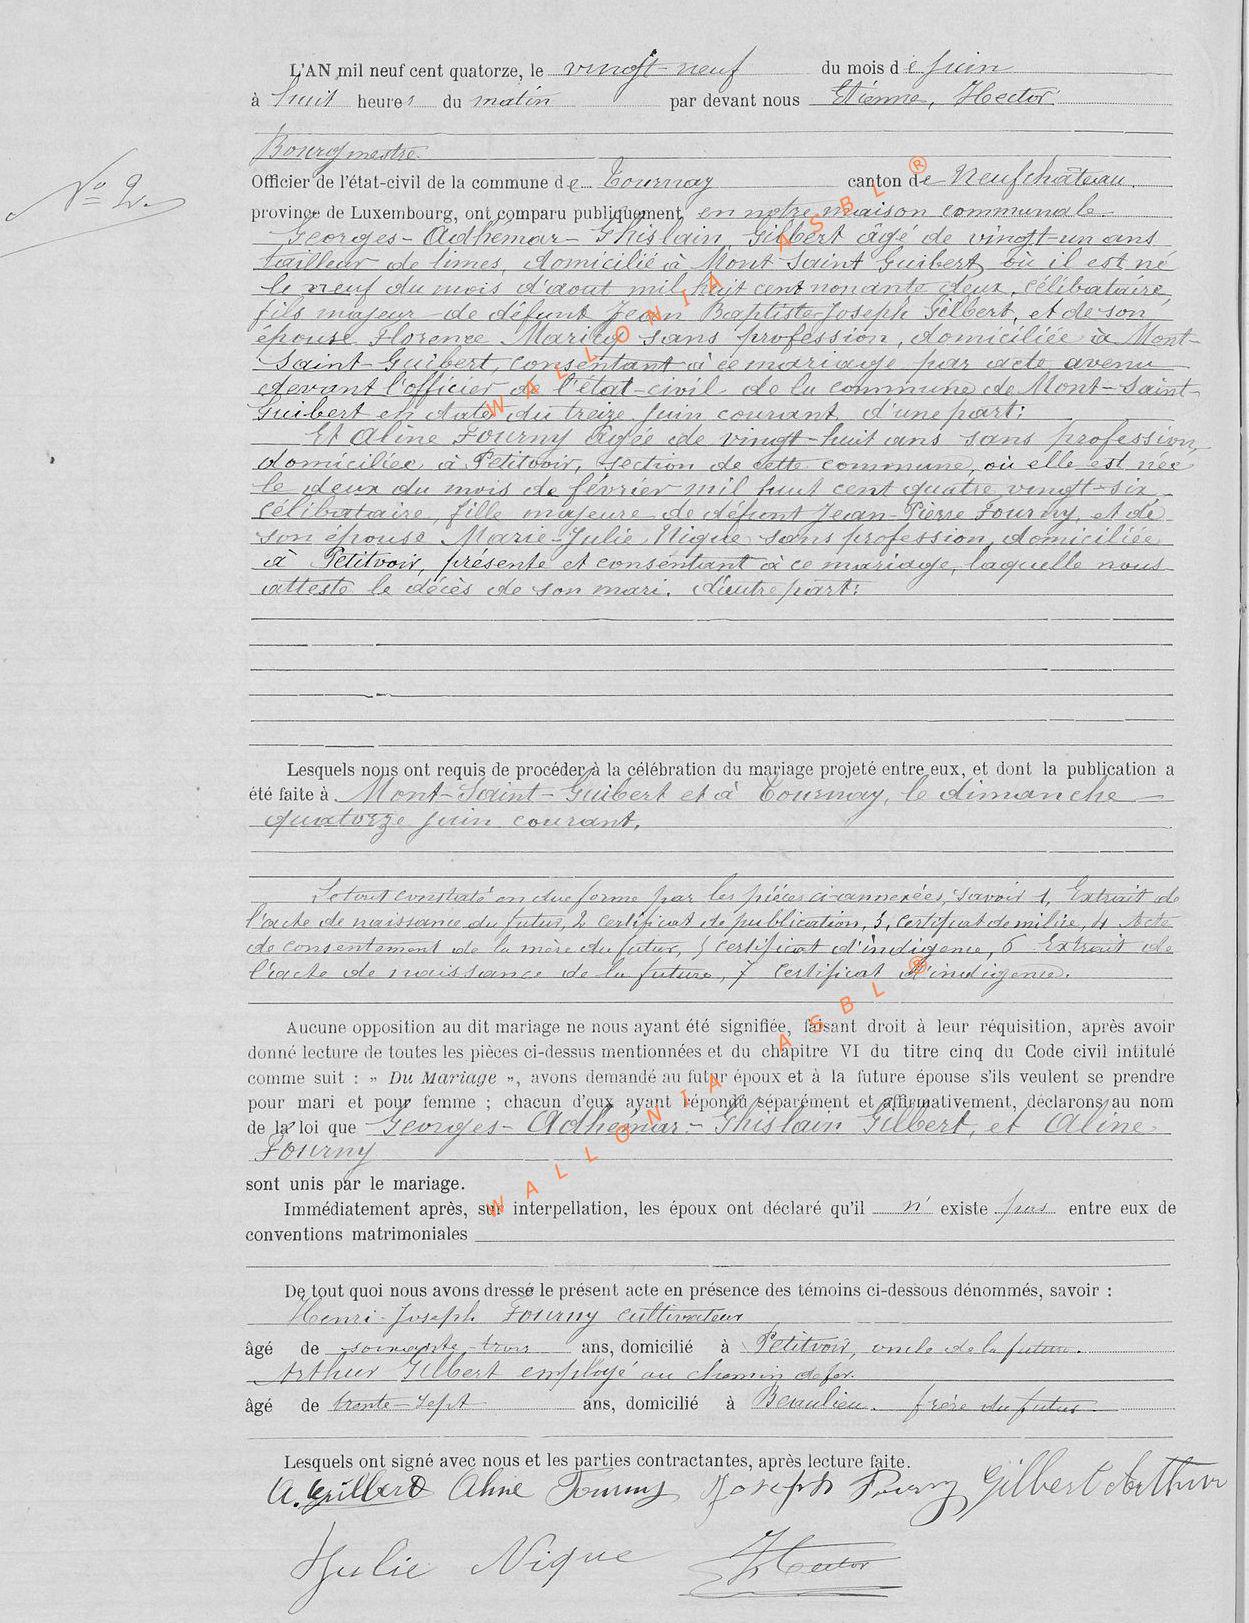 L'AN mil neuf cent quatorze, le vingt-neuf du mois de juin
à huit heures du matin par devant nous Etienne, Hector
Bourgmestre
Nº 2.
Officier de l'état-civil de la commune de Tournay canton de Neufchâteau.
province de Luxembourg, ont comparu publiquement en notre maison communale.
Georges-Adhemar-Ghislain Gilbert âgé de vingt-un ans
tailleur de limes, domicilié à Mont Saint Guibert où il est né
le neuf du mois d'aout mil huit cent nonante deux, célibataire,
fils majeur de défunt Jean Baptiste-Joseph Gilbert, et de son
épouse Florence sans profession, domiciliée à Mont-
Saint-Guibert, consentant à ce mariage par acte avenu
devant l'officier de l'état-civil de la commune de Mont-Saint-
Guibert en date du treize juin courant, d'une part;
Et Aline Fourny âgée de vingt-huit ans sans profession,
domiciliée à Petitvoir, section de cette commune, où elle est née
le deux du mois de février mil huit cent quatre vingt-six,
célibataire, fille majeure de défunt Jean-Pierre Fourny, et de
son épouse Marie-Julie Nique sans profession, domiciliée
à Petitvoir, présente et consentant à ce mariage, laquelle nous
atteste le décès de son mari. d'autre part;
Lesquels nous ont requis de procéder à la célébration du mariage projeté entre eux, et dont la publication a
été faite à Mont-Saint-Guibert et à Tournay, le dimanche
quatorze juin courant.
Le tout constaté en due forme par les pièces ci-annexées, savoir 1, Extrait de
l'acte de naissance du futur, 2 certificat de publication, 3, certificat de milice, 4 Acte
de consentement de la mère du futur, 5 certificat d'indigence, 6 Extrait de
l'acte de naissance de la future, 7 certificat d'indigence.
Aucune opposition au dit mariage ne nous ayant été signifiée, faisant droit à leur réquisition, après avoir
donné lecture de toutes les pièces ci-dessus mentionnées et du chapitre VI du titre cinq du Code civil intitulé
comme suit : » Du Mariage », avons demandé au futur époux et à la future épouse s'ils veulent se prendre
pour mari et pour femme ; chacun d'eux ayant répondu séparément et affirmativement, déclarons au nom
de la loi que Georges-Adhémar-Ghislain Gilbert, et Aline
Fourny
sont unis par le mariage.
Immédiatement après, sur interpellation, les époux ont déclaré qu'il n' existe pas entre eux de
conventions matrimoniales
De tout quoi nous avons dressé le présent acte en présence des témoins ci-dessous dénommés, savoir :
Henri-Joseph Fourny cultivateur
âgé de soixante-trois ans, domicilié à Petitvoir, oncle de la future.
Arthur Gilbert employé au chemin de fer.
âgé de trente-sept ans, domicilié à Beaulieu. frère du futur.
Lesquels ont signé avec nous et les parties contractantes, après lecture faite.
A. Gilbert Aline Fourny Joseph Fourny Gilbert Arthur
Julie Nique Hector
WALLONIA ASBL ®
WALLONIA ASBL ®